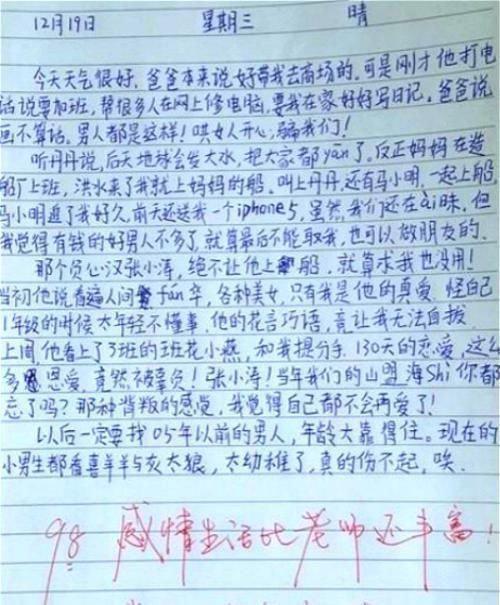 12月19日 星期三 晴
今天天气很好,爸爸本来说好带我去商场的,可是刚才他打电
话说要加班,帮很多人在网上修电脑,要我在家好好写日记。爸爸说
画不算话。男人都是这样!哄女人开心,骗我们!
听丹丹说,后天地球会发大水,把大家都yān了。反正妈妈在造
船厂上班,洪水来了我就上妈妈的船。叫上丹丹,还有马小明,一起上船,
马小明追了我好久,前天还送我一个iphone5,虽然我们还在ài昧,但
我觉得有钱的好男人不多了,就算最后不能取我,也可以做朋友的。
那个负心汉张小涛,绝不让他上船,就算求我也没用!
当初他说看遍人间fán华,各种美女,只有我是他的真爱,怪自己
1年级的时候太年轻不懂事,他的花言巧语,竟让我无法自拔,
上周,他看上了3班的班花小燕,和我提分手,130天的恋爱,这么
多恩爱,竟然被辜负!张小涛!当年我们的山盟海Shi你都
忘了吗?那种背叛的感觉,我觉得自己都不会再爱了!
以后一定要找05年以前的男人,年龄大靠得住。现在的
小男生都看喜羊羊与灰太狼,太幼稚了,真的伤不起,唉。
98 感情生活比老师还丰富!